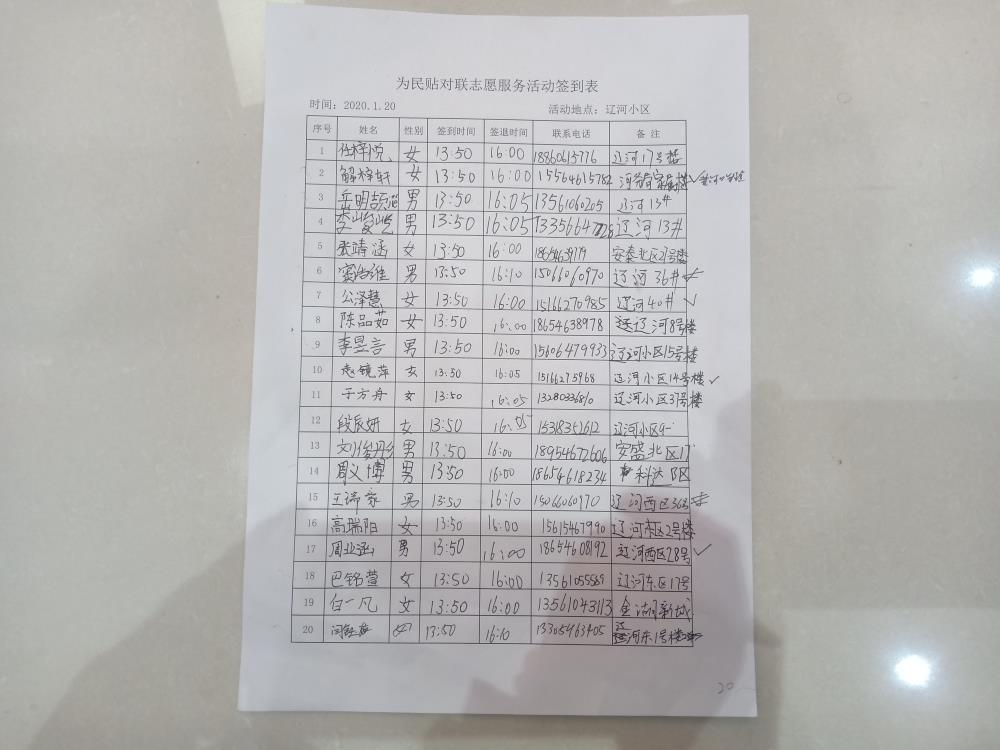 为民贴对联志愿服务活动签到表
时间：2020.1.20 活动地点：辽河小区
序号 姓名 性别 签到时间 签退时间 联系电话 备注
1 任梓悦 女 13:50 16:00 18860615776 辽河17号楼
2 解梓轩 女 13:50 16:00 15564615782
3 岳明颉 男 13:50 16:05 13561060205 辽河13#
4 李俊悦 男 13:50 16:05 辽河13#
5 张靖涵 女 13:50 16:00 安泰北区21号楼
6 男 13:50 16:10 15066060970 辽河36#
7 公泽慧 女 13:50 16:00 15166270985 辽河40# ✓
8 陈品茹 女 13:50 16:00 18654638978 辽河8号楼
9 李昱言 男 13:50 16:00 15606479933 辽河小区15号楼
10 赵镜萍 女 13:50 16:05 15166275968 辽河小区14号楼 ✓
11 于方舟 女 13:50 16:05 辽河小区37号楼
12 段辰妍 女 13:50 16:05 15318351612 辽河小区9-
13 刘俊彤 男 13:50 16:00 18954672606 安盛北区17
14 周义博 男 13:50 16:00 18654618234 科达B区
15 王瑞家 男 13:50 16:10 15066060970 辽河西区36号
16 高瑞阳 女 13:50 16:00 15615467990 辽河东区2号楼
17 周业涵 男 13:50 16:00 18654608192 辽河西区28号 ✓
18 巴铭萱 女 13:50 16:00 13561055589 辽河东区17号
19 白一凡 女 13:50 16:00 13561043113 金湖新城
20 13:50 16:10 13305463405 辽河东1号楼
20